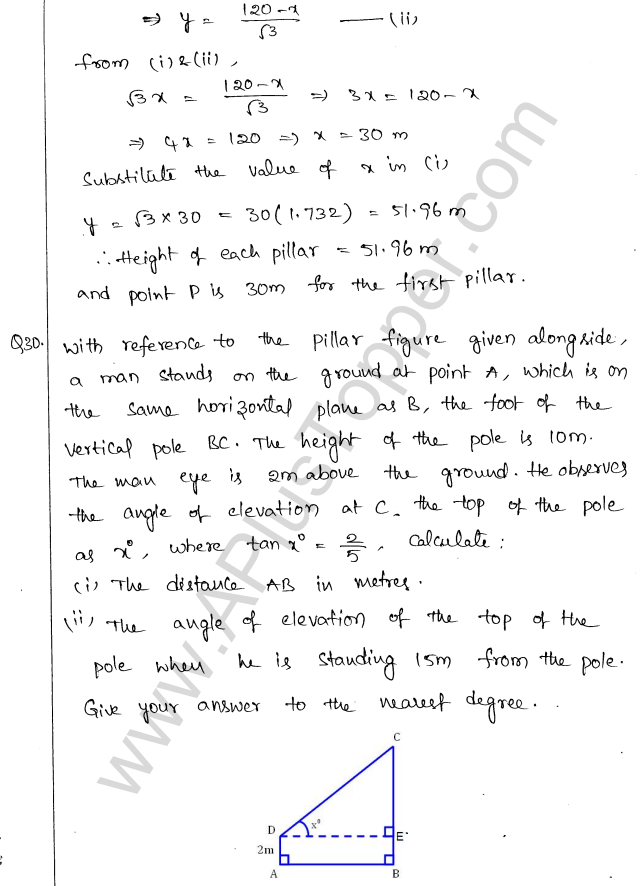 ⇒ y = (120-x)/√3 —— (ii)
from (i) & (ii),
√3x = (120-x)/√3 ⇒ 3x = 120-x
⇒ 4x = 120 ⇒ x = 30 m
Substitute the value of x in (i)
y = √3 × 30 = 30(1.732) = 51.96 m
∴ Height of each pillar = 51.96 m
and point P is 30m for the first pillar.
Q30. With reference to the pillar figure given alongside,
a man stands on the ground at point A, which is on
the same horizontal plane as B, the foot of the
vertical pole BC. The height of the pole is 10m.
The man eye is 2m above the ground. He observes
the angle of elevation at C. the top of the pole
as x°, where tan x° = 2/5, calculate:
(i) The distance AB in metres.
(ii) The angle of elevation of the top of the
pole when he is standing 15m from the pole.
Give your answer to the nearest degree.
C
D x° E
2m
A B
www.APlusTopper.com